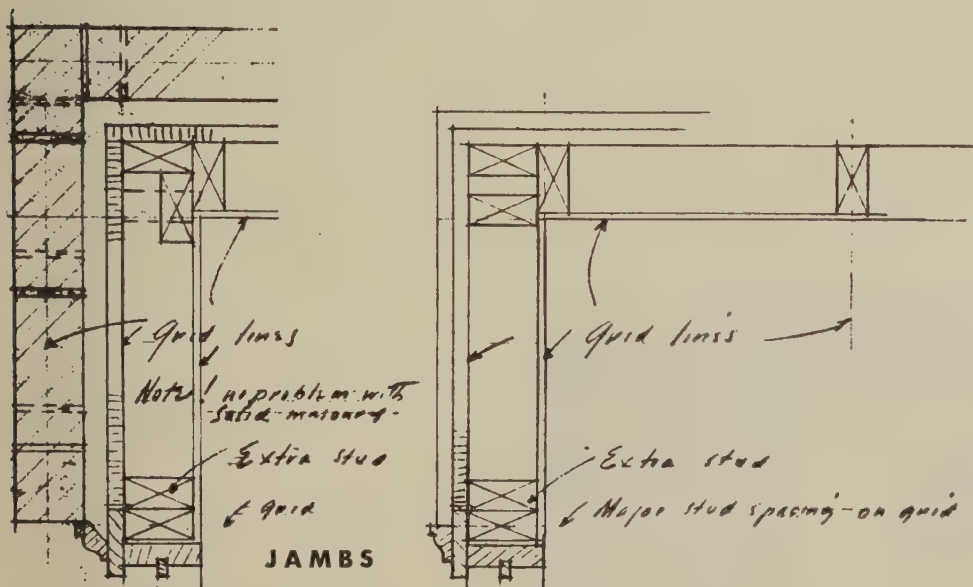 Grid lines
Note! no problem with
solid masonry-
Extra stud
grid
JAMBS
Grid lines
Extra stud
Major stud spacing - on grid